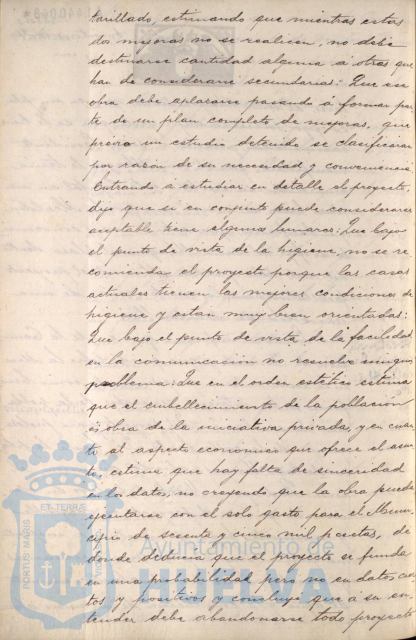 tarillado, estimando que mientras estas
dos mejoras no se realicen, no debe
destinarse cantidad alguna á otras que
han de considerarse secundarias: Que esa
obra debe aplazarse pasando á formar par-
te de un plan completo de mejoras, que
previo un estudio detenido se clasificaran
por razón de su necesidad y conveniencia.
Entrando á estudiar en detalle el proyecto,
dijo que si en conjunto puede considerarse
aceptable tiene algunos lunares: Que bajo
el punto de vista de la higiene, no se re-
comienda el proyecto porque las casas
actuales tienen las mejores condiciones de
higiene y estan muy bien orientadas:
Que bajo el punto de vista de la facilidad
en la comunicación no resuelve ningun
problema: Que en el orden estético estima
que el embellecimiento de la población
es obra de la iniciativa privada, y en cuan-
to al aspecto economico que ofrece el asun-
to, estima que hay falta de sinceridad
en los datos, no creyendo que la obra pueda
ejecutarse con el solo gasto para el Muni-
cipio de sesenta y cinco mil pesetas, de
donde deduce que el proyecto se funda
en una probabilidad pero no en datos, cier-
tos y positivos y concluye que á su en-
tender debe abandonarse todo proyecto
PORTUS MARIS
ET TERRÆ
Ayuntamiento de
HUELVA